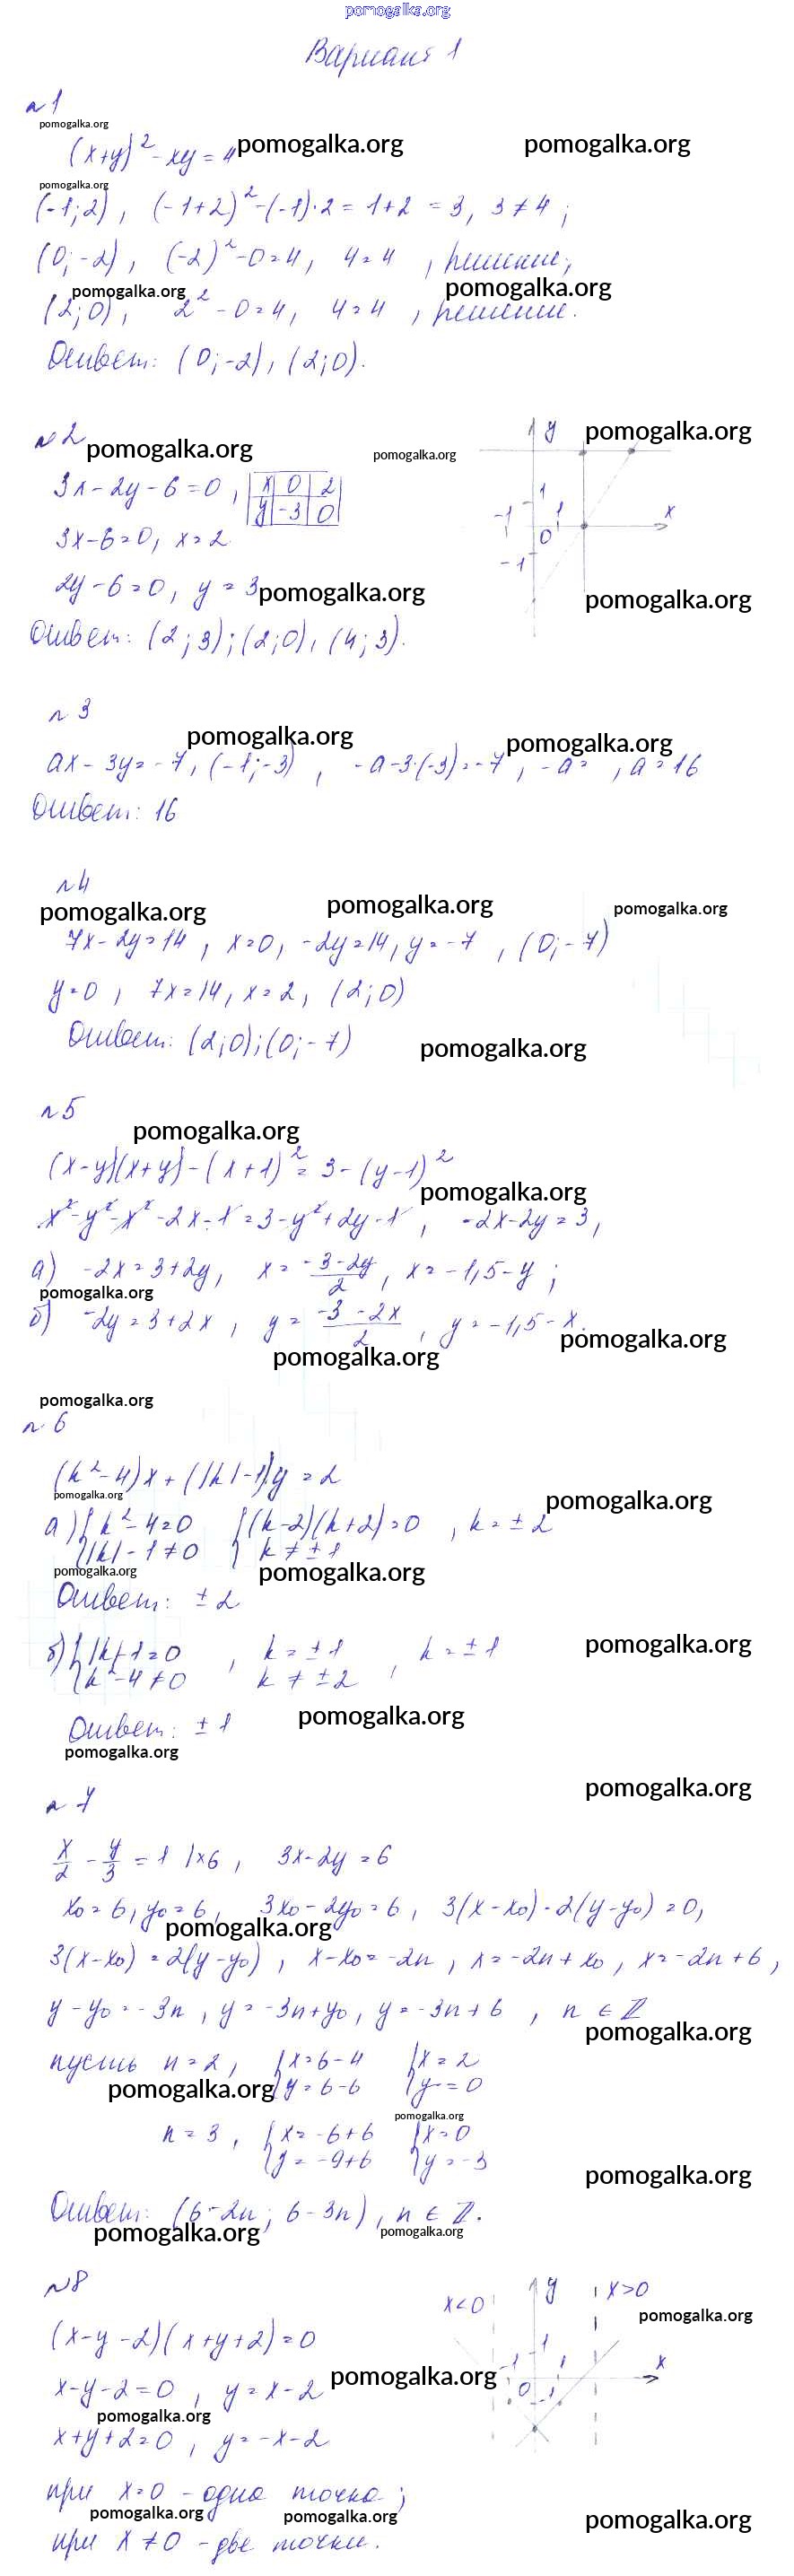 pomogalka.org
Вариант 1
№1
pomogalka.org
(x+y)² - xy = 4 pomogalka.org pomogalka.org
pomogalka.org
(-1; 2), (-1+2)² - (-1)·2 = 1+2 = 3, 3 ≠ 4;
(0; -2), (-2)² - 0 = 4, 4 = 4, решение;
pomogalka.org pomogalka.org
(2; 0), 2² - 0 = 4, 4 = 4, решение.
Ответ: (0; -2), (2; 0).
№2 pomogalka.org pomogalka.org pomogalka.org
y
3x - 2y - 6 = 0, x 0 2
y -3 0
1
-1 1 x
0
-1
3x - 6 = 0, x = 2
2y - 6 = 0, y = 3 pomogalka.org pomogalka.org
Ответ: (2; 3); (2; 0), (4; 3).
№3
pomogalka.org pomogalka.org
ax - 3y = -7, (-1; -3), -a - 3·(-3) = -7, -a = , a = 16
Ответ: 16
№4
pomogalka.org pomogalka.org pomogalka.org
7x - 2y = 14, x = 0, -2y = 14, y = -7, (0; -7)
y = 0, 7x = 14, x = 2, (2; 0)
Ответ: (2; 0); (0; -7)
pomogalka.org
№5
pomogalka.org
(x-y)(x+y) - (x+1)² = 3 - (y-1)²
pomogalka.org
x² - y² - x² - 2x - 1 = 3 - y² + 2y - 1, -2x - 2y = 3,
а) -2x = 3 + 2y, x = (-3-2y)/2, x = -1,5 - y;
pomogalka.org
б) -2y = 3 + 2x, y = (-3-2x)/2, y = -1,5 - x.
pomogalka.org
pomogalka.org
pomogalka.org
№6
(k² - 4)x + (|k| - 1)y = 2
pomogalka.org pomogalka.org
а) { k² - 4 = 0 { (k-2)(k+2) = 0, k = ±2
|k| - 1 ≠ 0 k ≠ ±1
pomogalka.org pomogalka.org
Ответ: ±2
б) { |k| - 1 = 0, k = ±1, k = ±1
pomogalka.org
k² - 4 ≠ 0 k ≠ ±2
Ответ: ±1 pomogalka.org
pomogalka.org
pomogalka.org
№7
x/2 - y/3 = 1 |×6, 3x - 2y = 6
x₀ = 6, y₀ = 6, 3x₀ - 2y₀ = 6, 3(x - x₀) - 2(y - y₀) = 0,
pomogalka.org
3(x - x₀) = 2(y - y₀), x - x₀ = -2n, x = -2n + x₀, x = -2n + 6,
y - y₀ = -3n, y = -3n + y₀, y = -3n + 6, n ∈ Z
pomogalka.org
пусть n = 2, { x = 6 - 4 { x = 2
y = 6 - 6 y = 0
pomogalka.org
pomogalka.org
n = 3, { x = -6 + 6 { x = 0
y = -9 + 6 y = -3
pomogalka.org
Ответ: (6 - 2n; 6 - 3n), n ∈ Z.
pomogalka.org pomogalka.org
№8
x<0 y x>0
pomogalka.org
(x - y - 2)(x + y + 2) = 0
1
-1 1 x
0
-1
x - y - 2 = 0, y = x - 2 pomogalka.org
pomogalka.org
x + y + 2 = 0, y = -x - 2
при x = 0 - одна точка;
pomogalka.org pomogalka.org pomogalka.org
при x ≠ 0 - две точки.